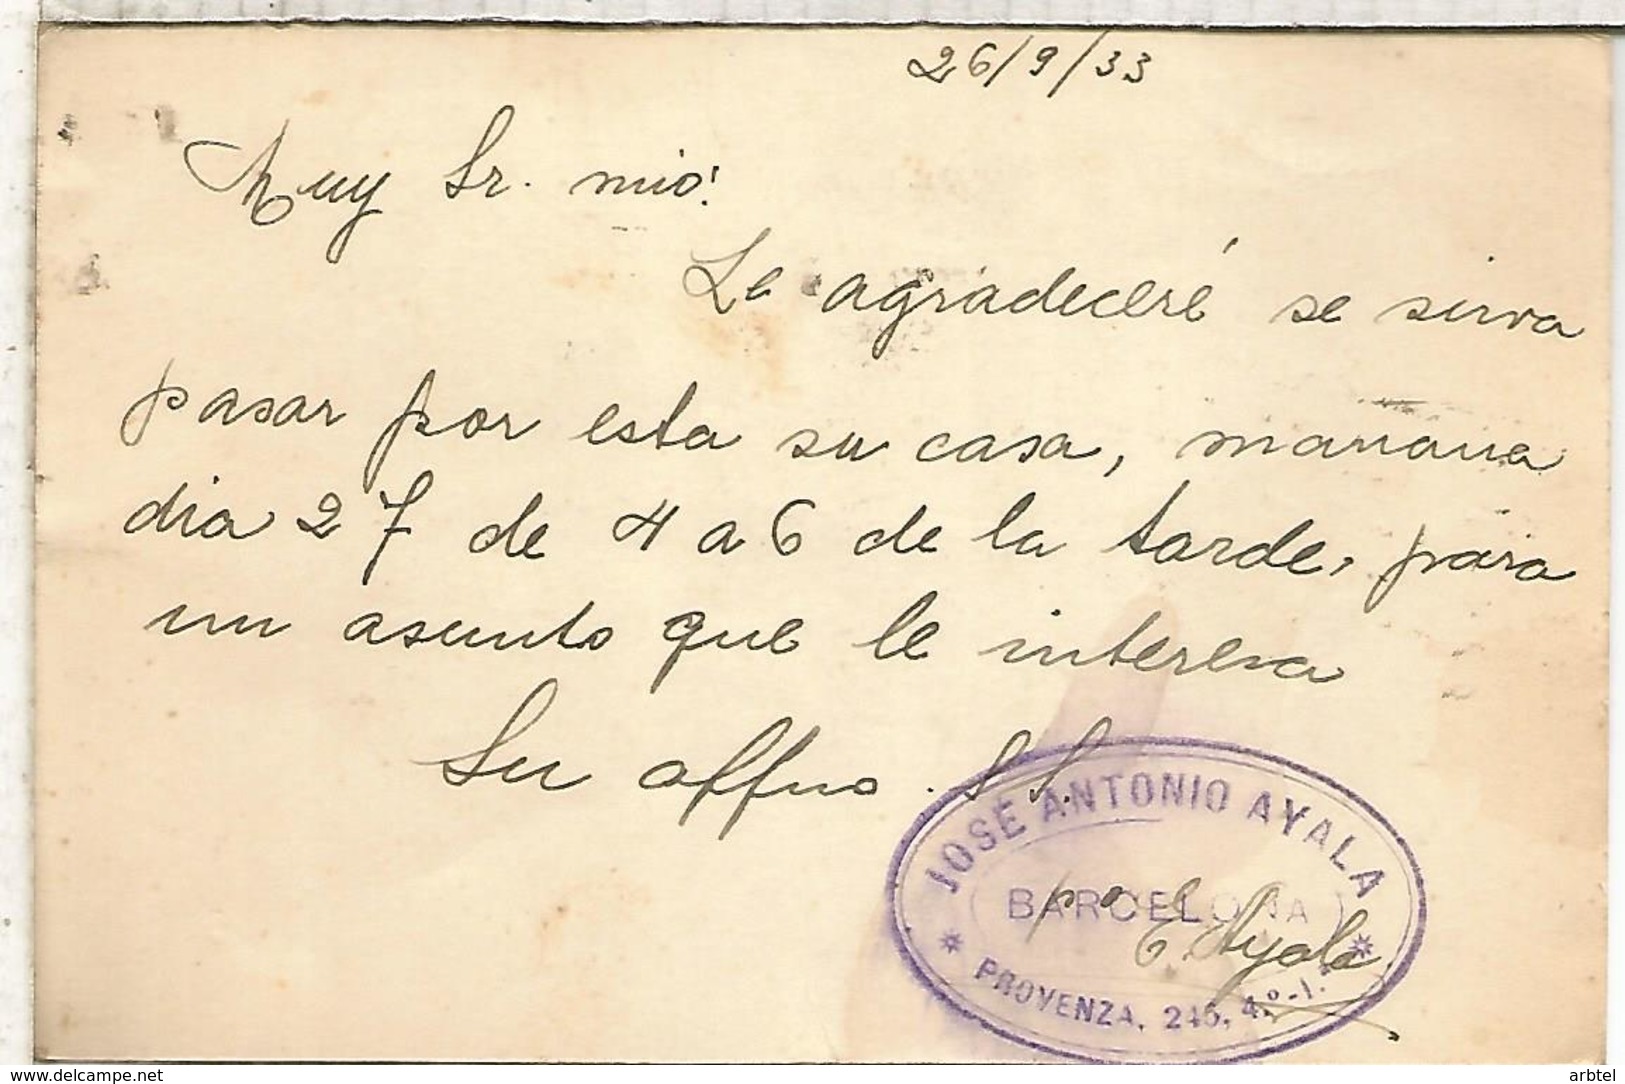 26/9/33
Muy Sr. mio:
Le agradeceré se sirva
pasar por esta su casa, mañana
dia 27 de 4 a 6 de la tarde, para
un asunto que le interesa
Su affmo. S.S.
JOSÉ ANTONIO AYALA
BARCELONA
E. Ayala
PROVENZA, 245, 4.º-1.ª
www.delcampe.net
arbtel